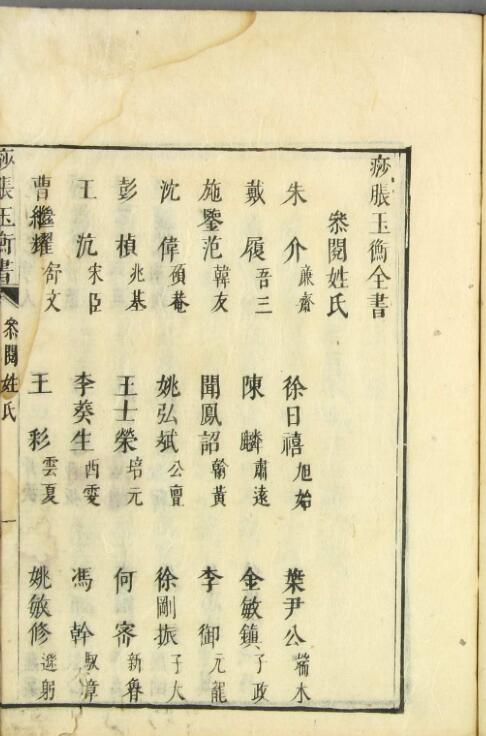 痧脹玉衡全書
叅閱姓氏
朱介 廉齋 徐日禧 旭始 葉尹公 瑞木
戴履 吾三 陳麟 肅遠 金敏鎮 子政
施鑒范 韓友 聞鳳詔 翰黃 李御 九龍
沈偉 碩菴 姚弘斌 公亶 徐剛振 子大
彭楨 兆基 王士榮 培元 何審 新魯
王沆 宋臣 李葵生 西雯 馮幹 馭漳
曹繼耀 舒文 王彩 雲夏 姚敏修 遜躬
痧脹玉衡書 叅閱姓氏 一